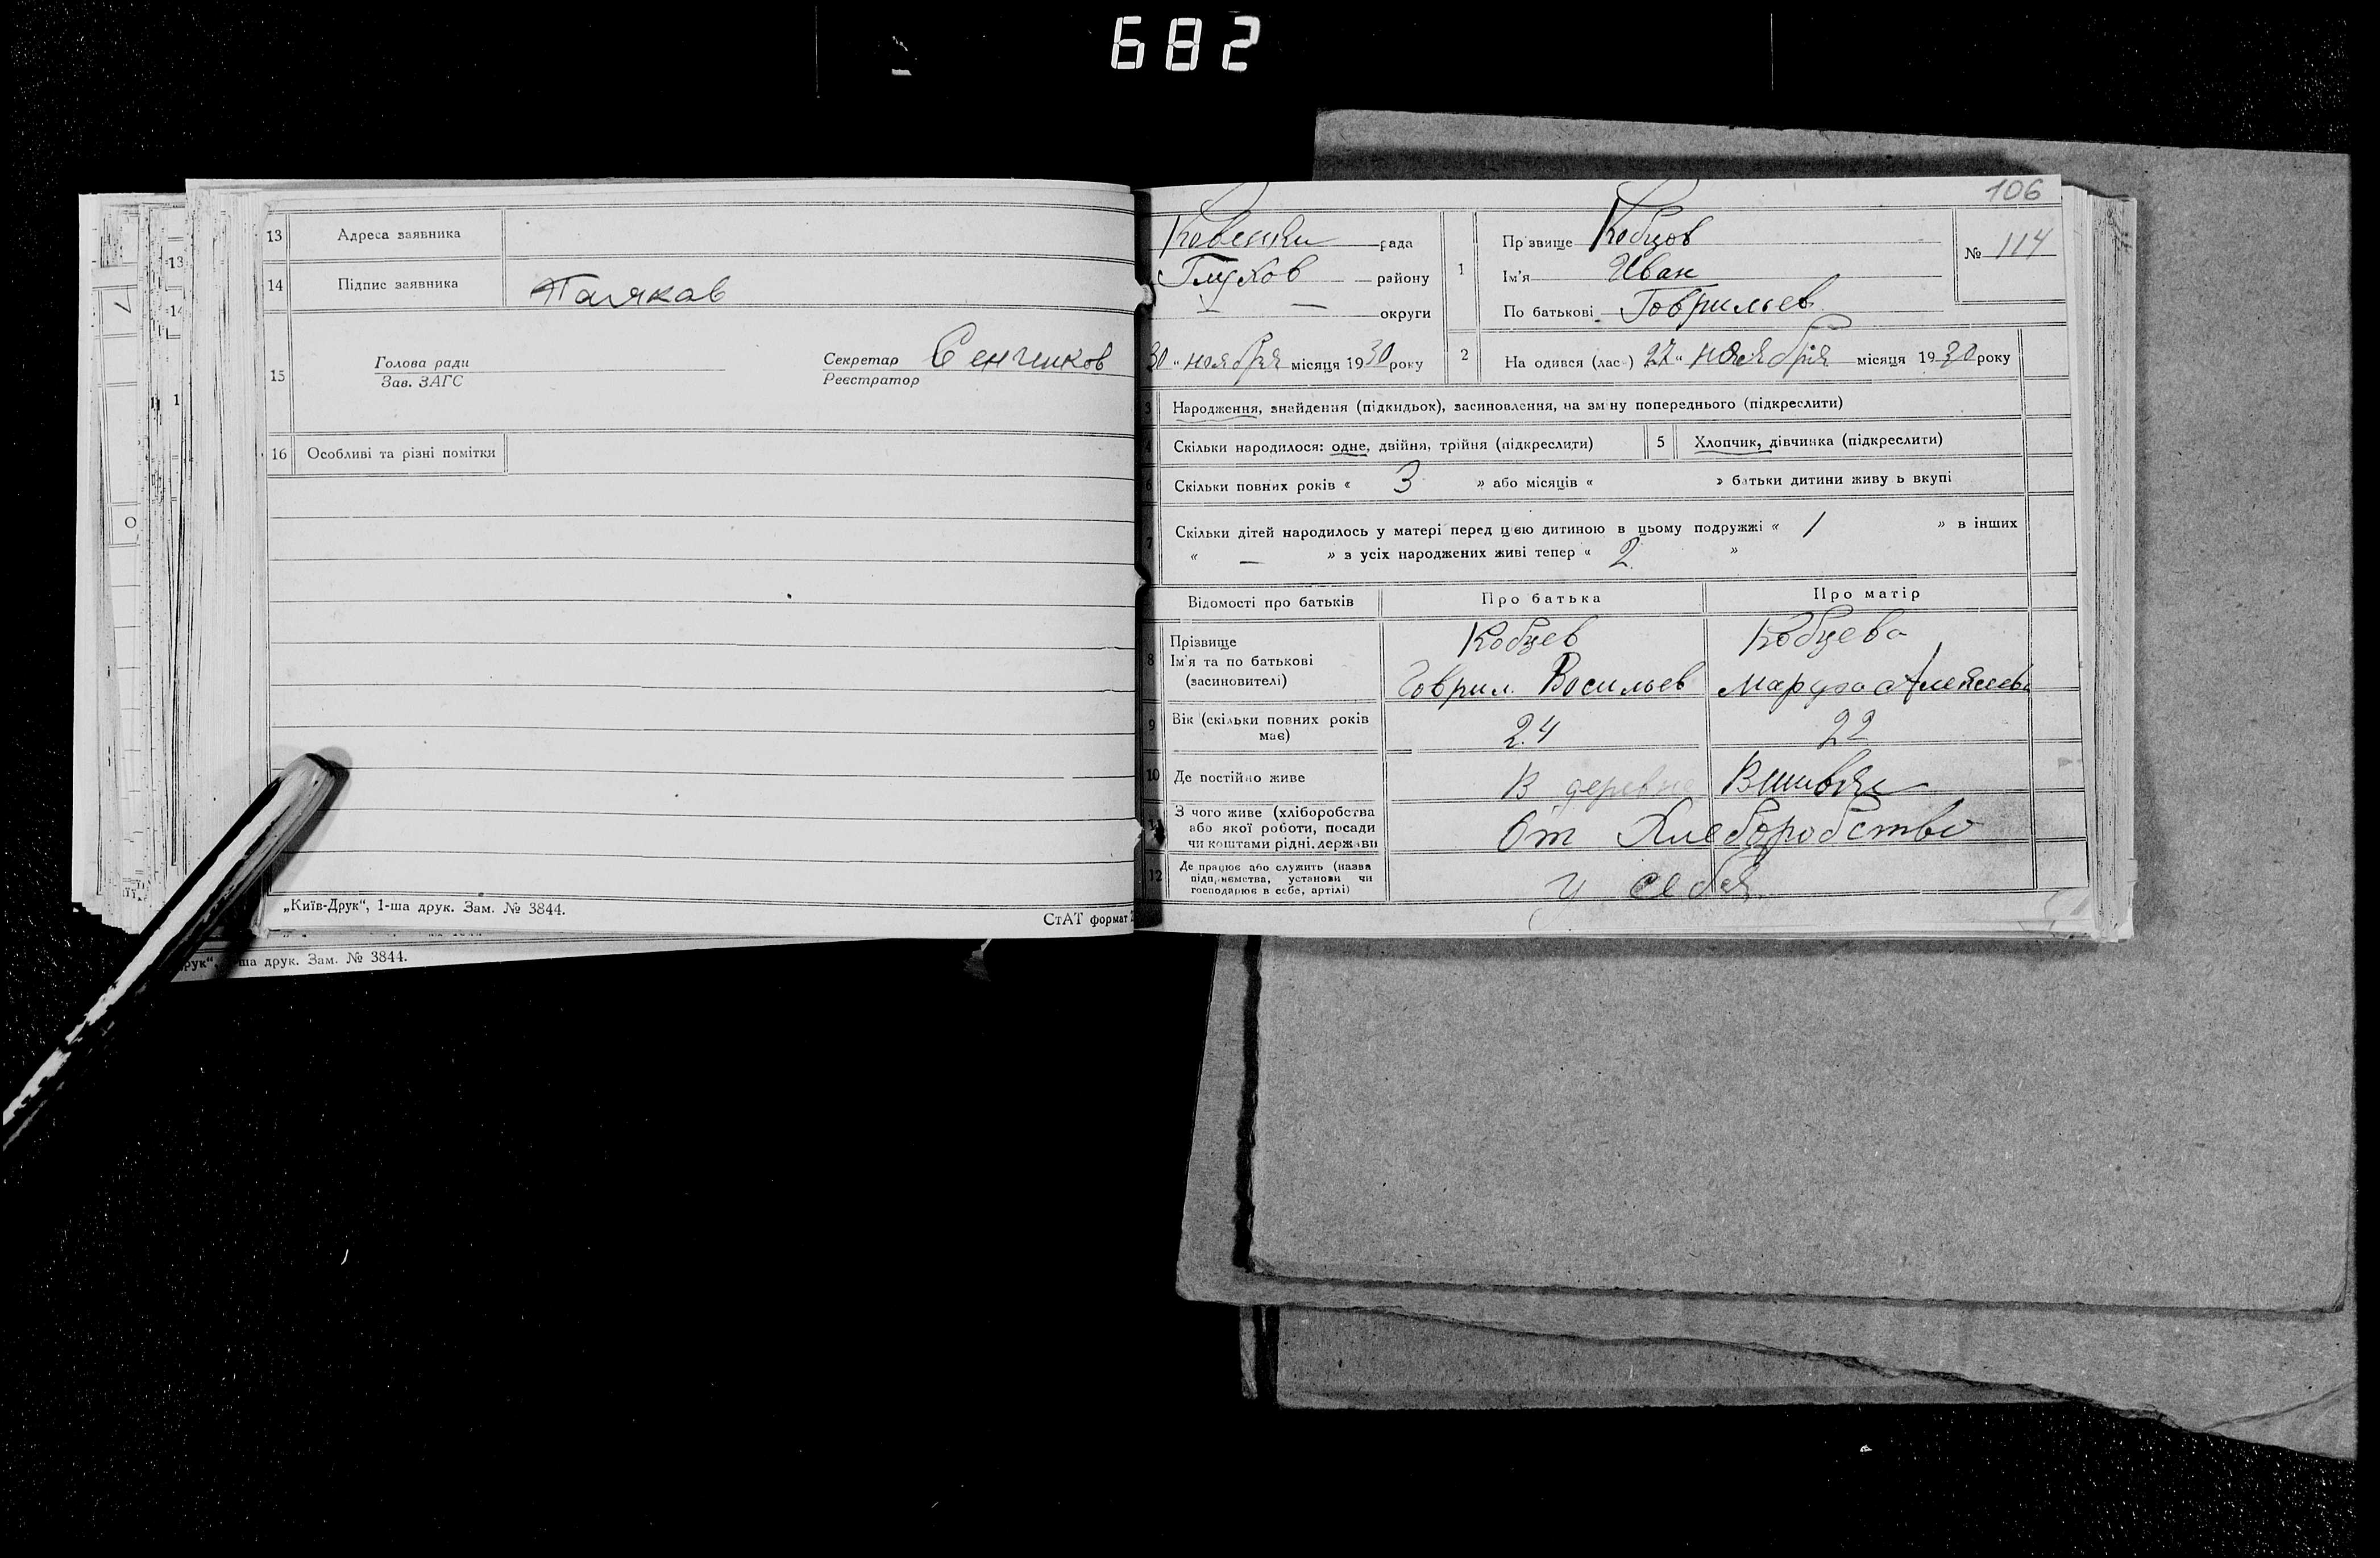 682
13 Адреса заявника
14 Підпис заявника Паляков
15 Голова ради
Зав. ЗАГС
Секретар Сенчиков
Реєстратор
16 Особливі та різні помітки
„Київ-Друк“, 1-ша друк. Зам. № 3844.
СтАТ формат
ша друк. Зам. № 3844.
106
рада
Глухов району
округи
30 „ ноября місяця 1930 року
1 Прізвище Кобцов
Ім'я Иван
По батькові Говрильев
№ 114
2 На одився (лас ) 22 „ ноября місяця 1930 року
3 Народження, знайдення (підкидьох), засиновлення, на зм ну попереднього (підкреслити)
4 Скільки народилося: одне, двійня, трійня (підкреслити)
5 Хлопчик, дівчинка (підкреслити)
6 Скільки повних років « 3 » або місяців « » батьки дитини живу ь вкупі
7 Скільки дітей народилось у матері перед цією дитиною в цьому подружжі « 1 » в інших
« — » з усіх народжених живі тепер « 2 »
Відомості про батьків Про батька Про матір
8 Прізвище Кобцев Кобцево
Ім'я та по батькові
(засиновителі) Говрил Восильев
9 Вік (скільки повних років
має) 24 22
10 Де постійно живе В деревне
11 З чого живе (хліборобства
або якої роботи, посади
чи коштами рідні, держави
От Хлеборобство
12 Де працює або служить (назва
підприємства, установи чи
господарює в себе, артілі)
у себя